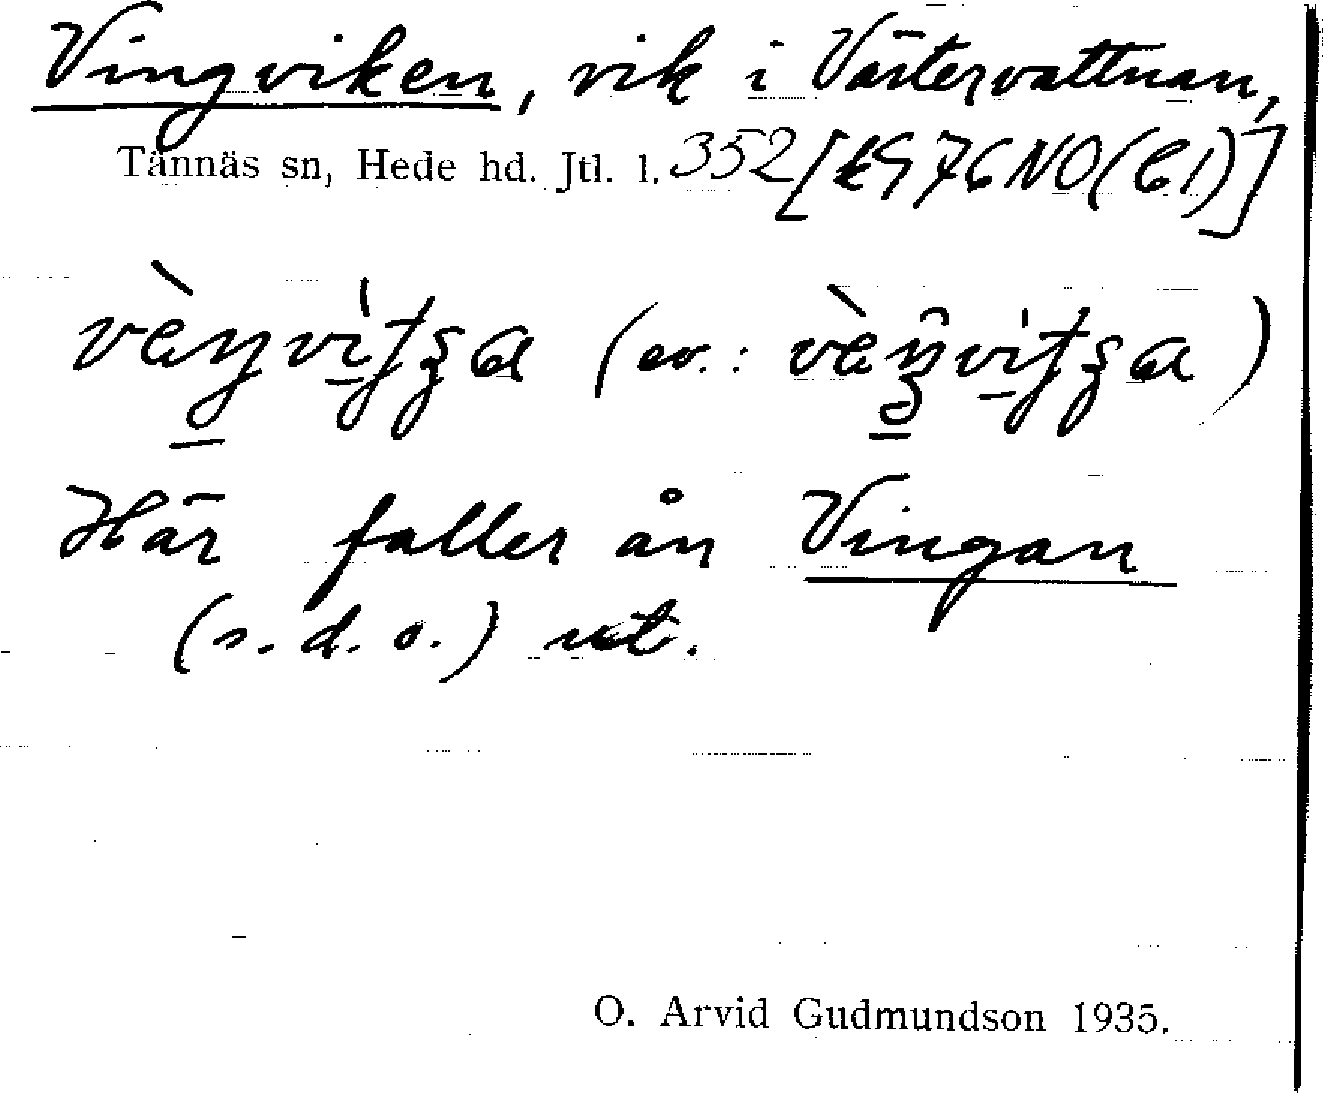 Vingviken, vik i Västervattnan,
Tännäs sn, Hede hd. Jtl. l. 352 [tS 76 NO (C1)]
(ev.: )
Här faller ån Vingan
(s. d. o.) ut.
O. Arvid Gudmundson 1935.